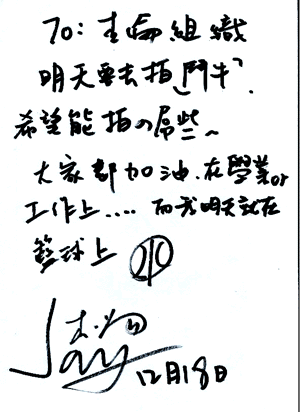 TO: 杰倫組織
明天要去拍「鬥牛」.
希望能拍の屌些~
大家都加油.在學業or
工作上.... 而我明天就在
籃球上
杰倫
Jay
12月18日